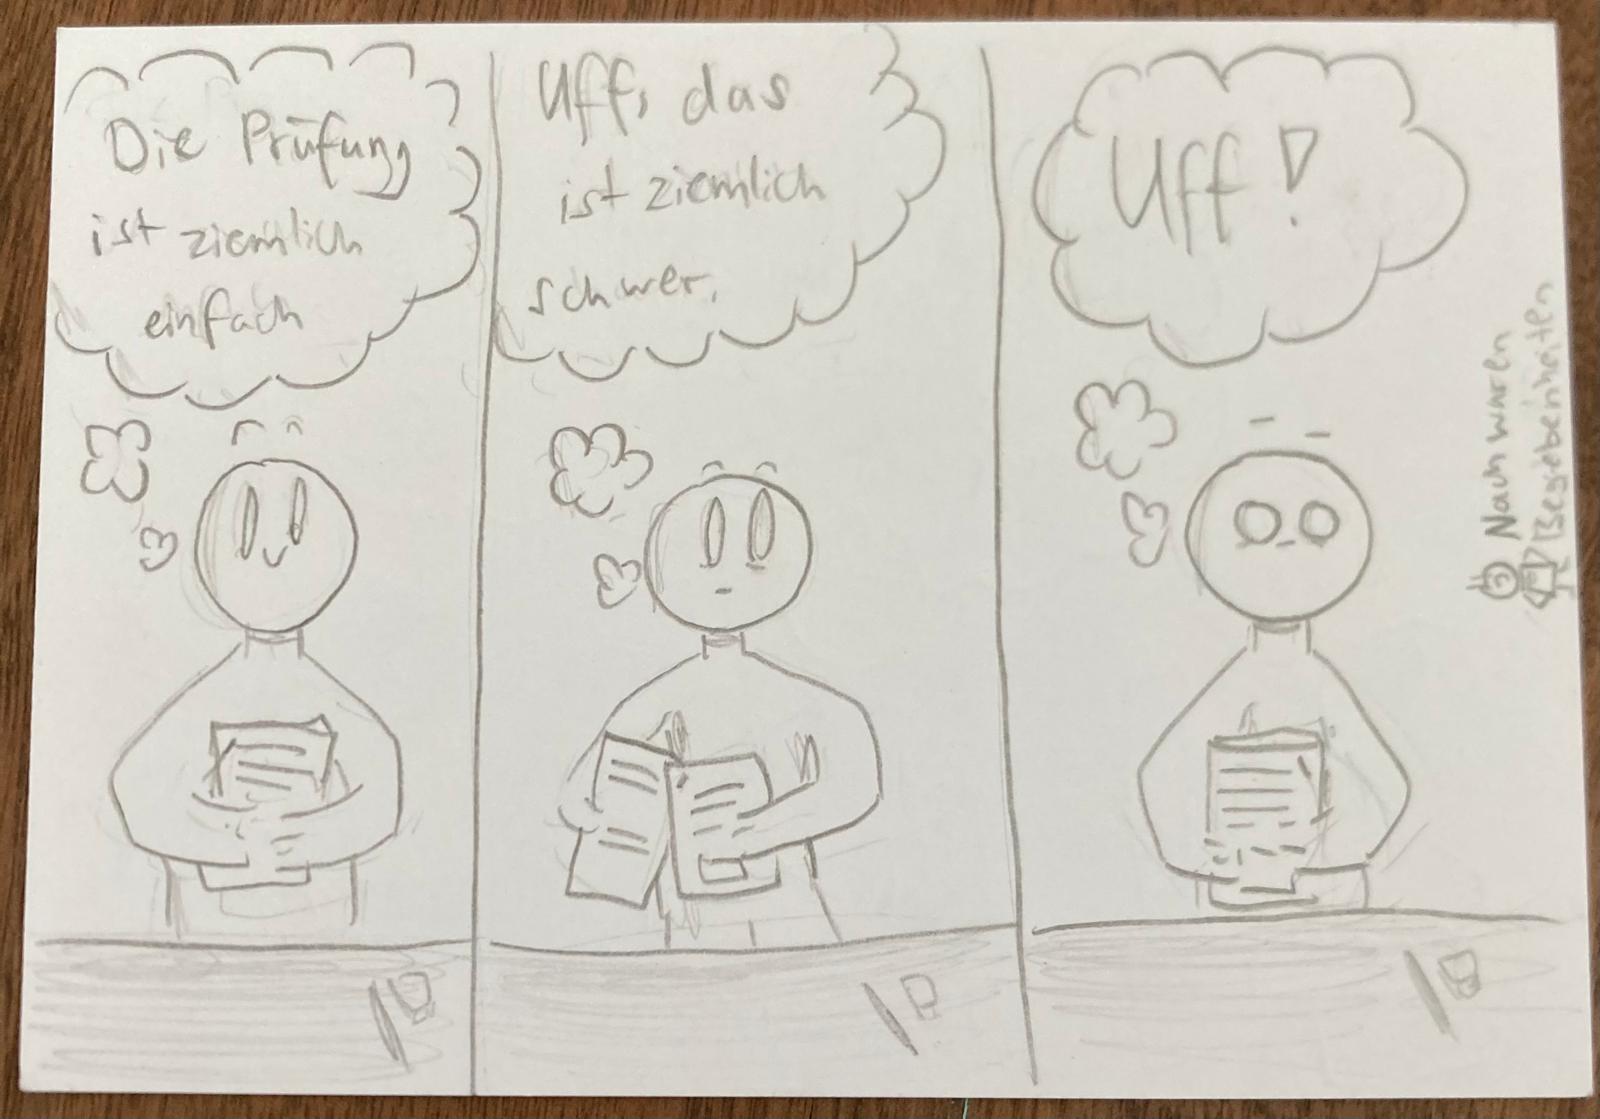 Die Prüfung
ist ziemlich
einfach
Uff, das
ist ziemlich
schwer.
Uff!
Nach waren
Begebenheiten